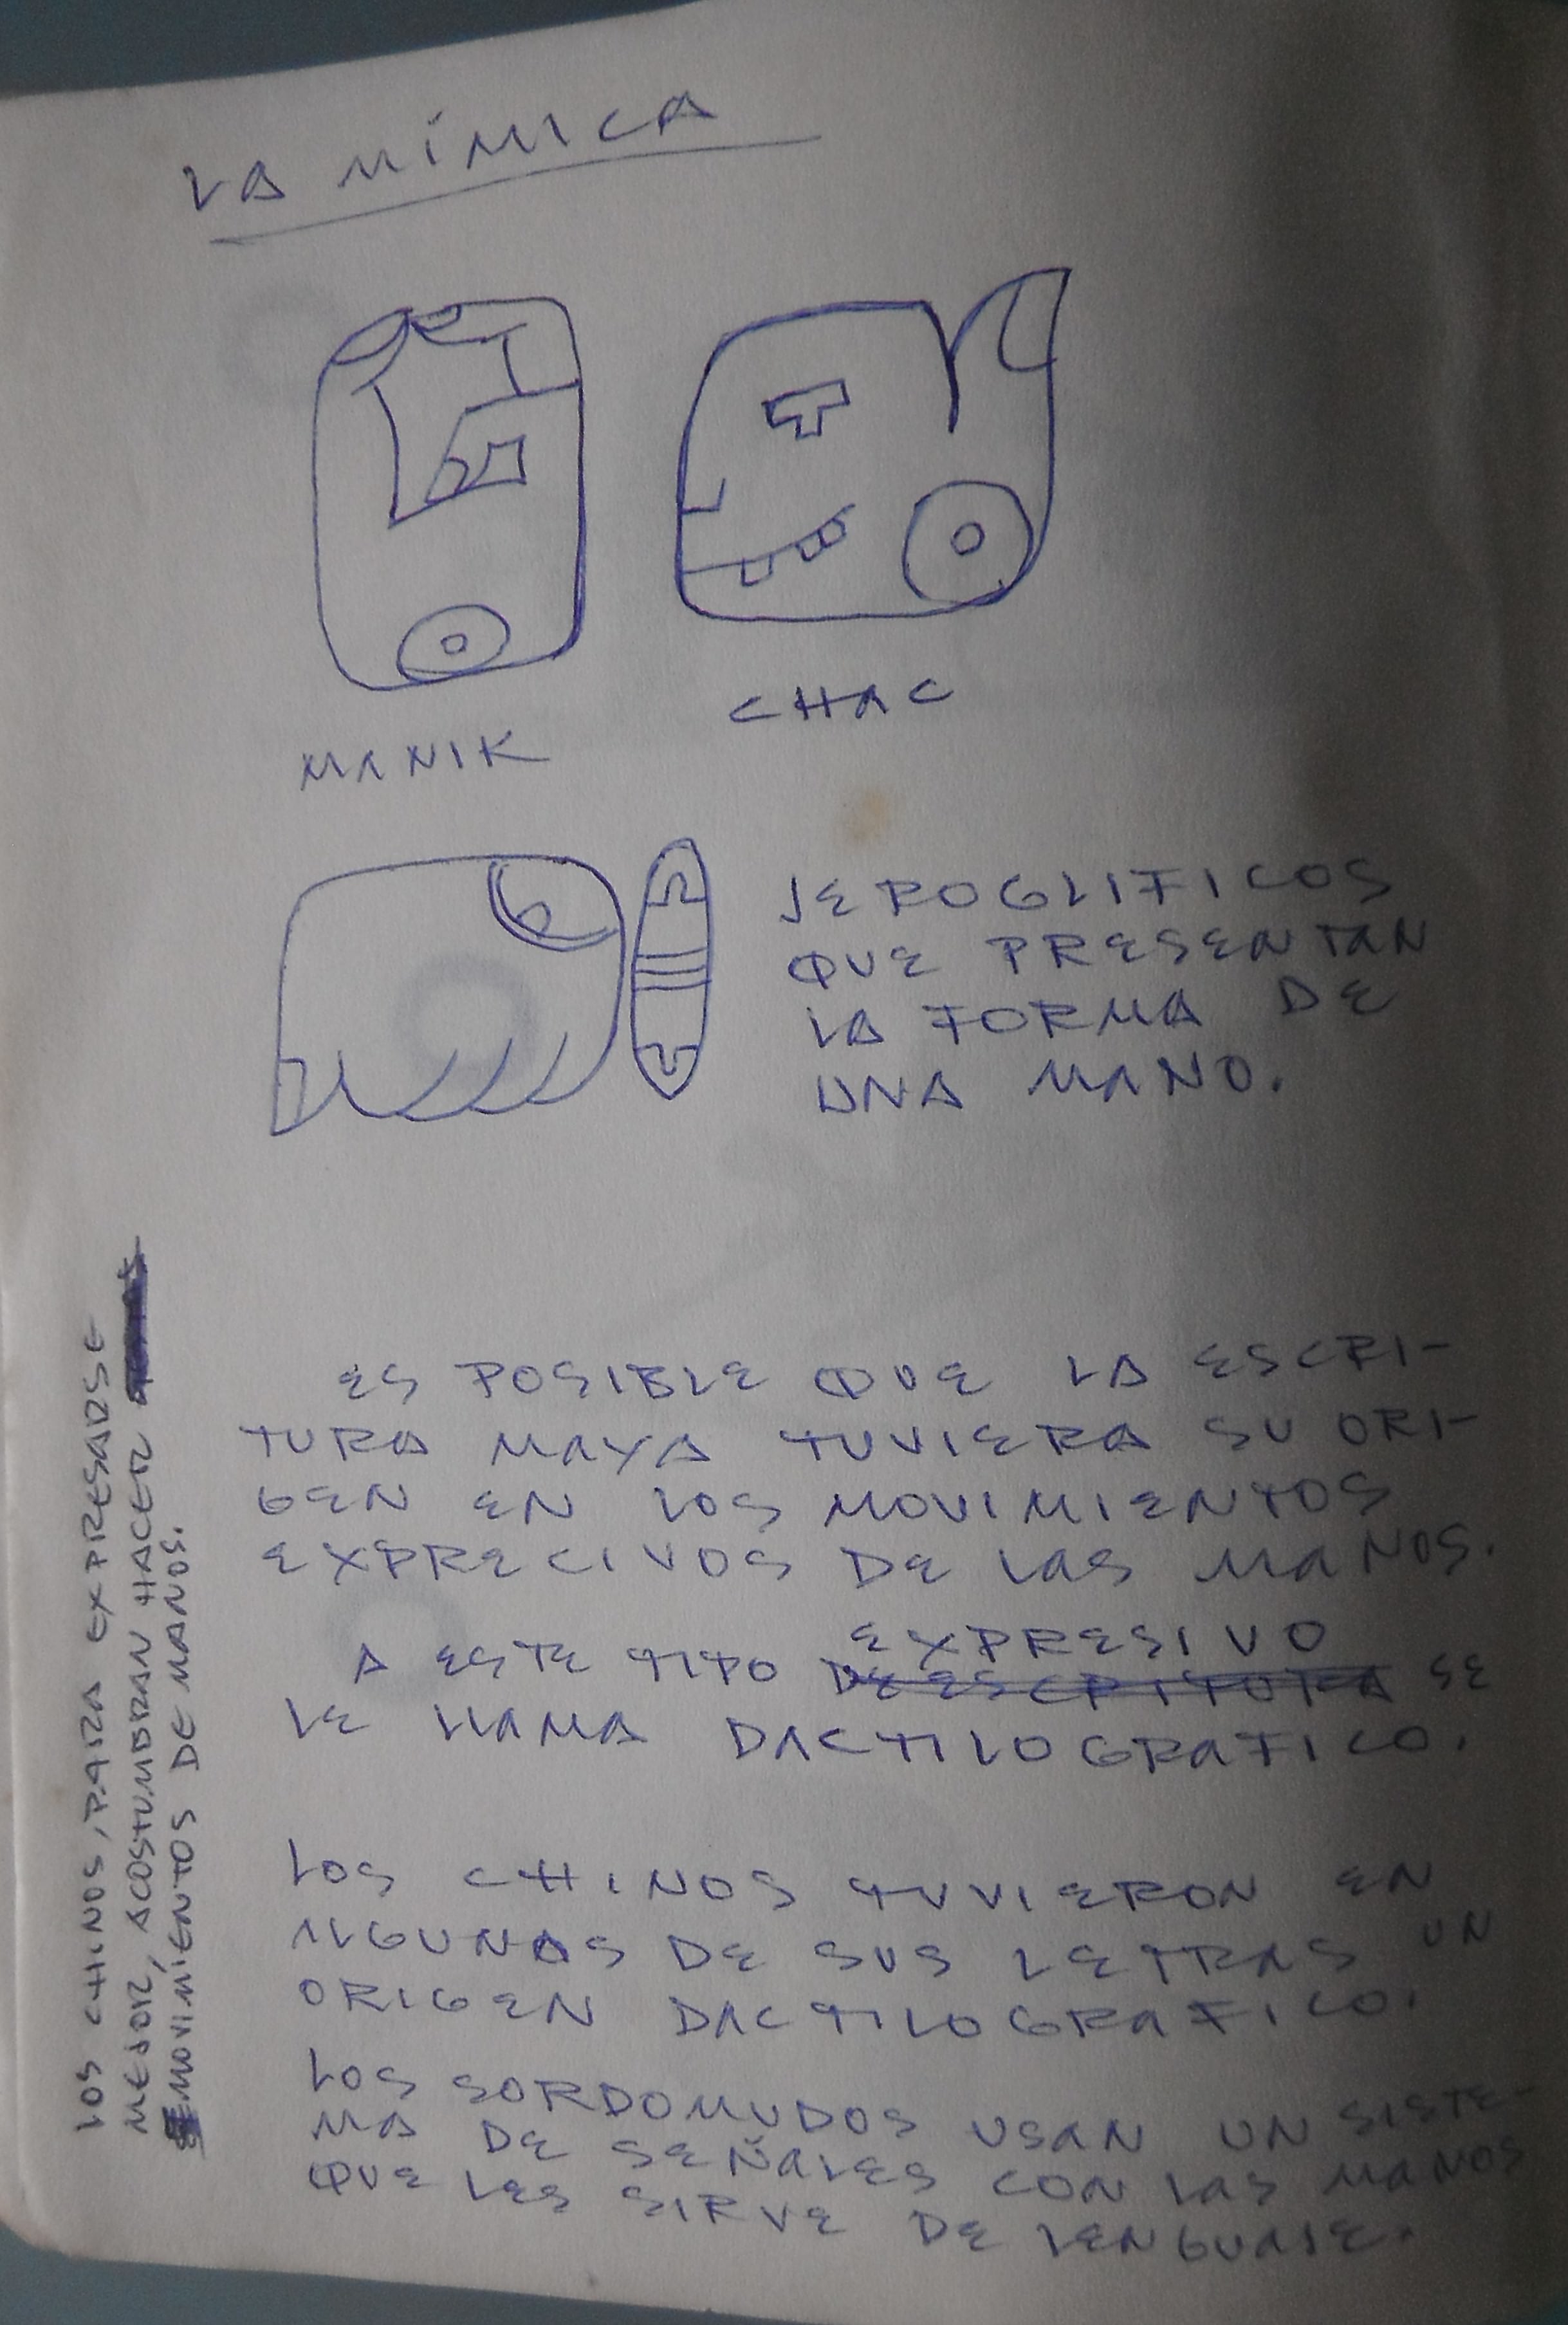 LA MÍMICA
MANIK
CHAC
JEROGLIFICOS
QUE PRESENTAN
LA FORMA DE
UNA MANO.
ES POSIBLE QUE LA ESCRI-
TURA MAYA TUVIERA SU ORI-
GEN EN LOS MOVIMIENTOS
EXPRECIVOS DE LAS MANOS.
EXPRESIVO
A ESTE TIPO DE ESCRITURA SE
LE LLAMA DACTILOGRAFICO.
LOS CHINOS TUVIERON EN
ALGUNAS DE SUS LETRAS UN
ORIGEN DACTILOGRAFICO.
LOS SORDOMUDOS USAN UN SISTE-
MA DE SEÑALES CON LAS MANOS
QUE LES SIRVE DE LENGUAJE.
LOS CHINOS, PARA EXPRESARSE
MEJOR, ACOSTUMBRAN HACER
MOVIMIENTOS DE MANOS.